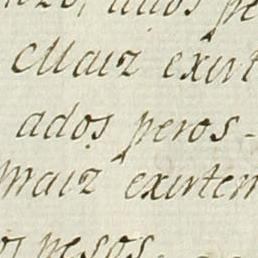 ados pe
Maiz exist
ados pesos-
maiz existen
os pesos.